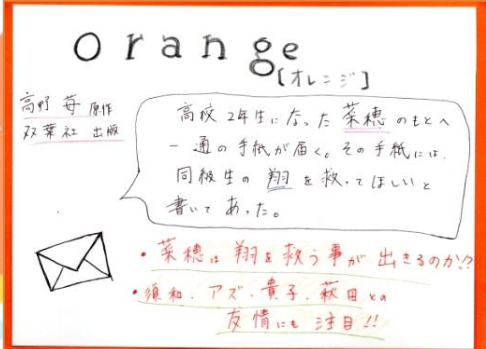 orange
[オレンジ]
高野 苺 原作
双葉社 出版
高校2年生になった菜穂のもとへ
一通の手紙が届く。その手紙には、
同級生の翔を救ってほしいと
書いてあった。
・菜穂は翔を救う事が出きるのか!?
・須和、アズ、貴子、萩田との
友情にも注目!!